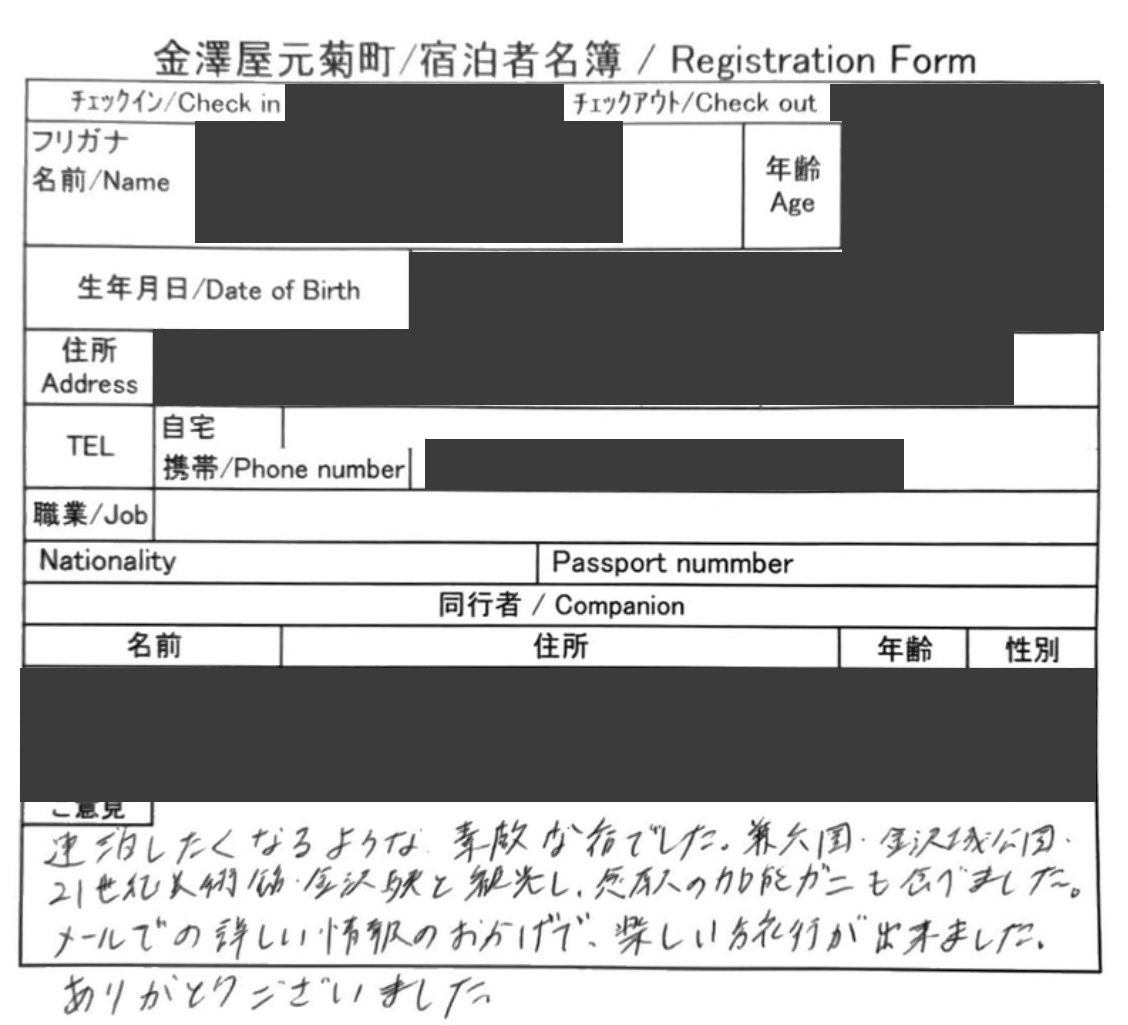 金澤屋元菊町/宿泊者名簿 / Registration Form
チェックイン/Check in チェックアウト/Check out
フリガナ
名前/Name
年齢
Age
生年月日/Date of Birth
住所
Address
TEL
自宅
携帯/Phone number
職業/Job
Nationality Passport nummber
同行者 / Companion
名前 住所 年齢 性別
ご意見
連泊したくなるような 素敵な宿でした。兼六園・金沢城公園・
21世紀美術館・金沢駅と観光し、念願の加能ガニも食べました。
メールでの詳しい情報のおかげで、楽しい旅行が出来ました。
ありがとうございました